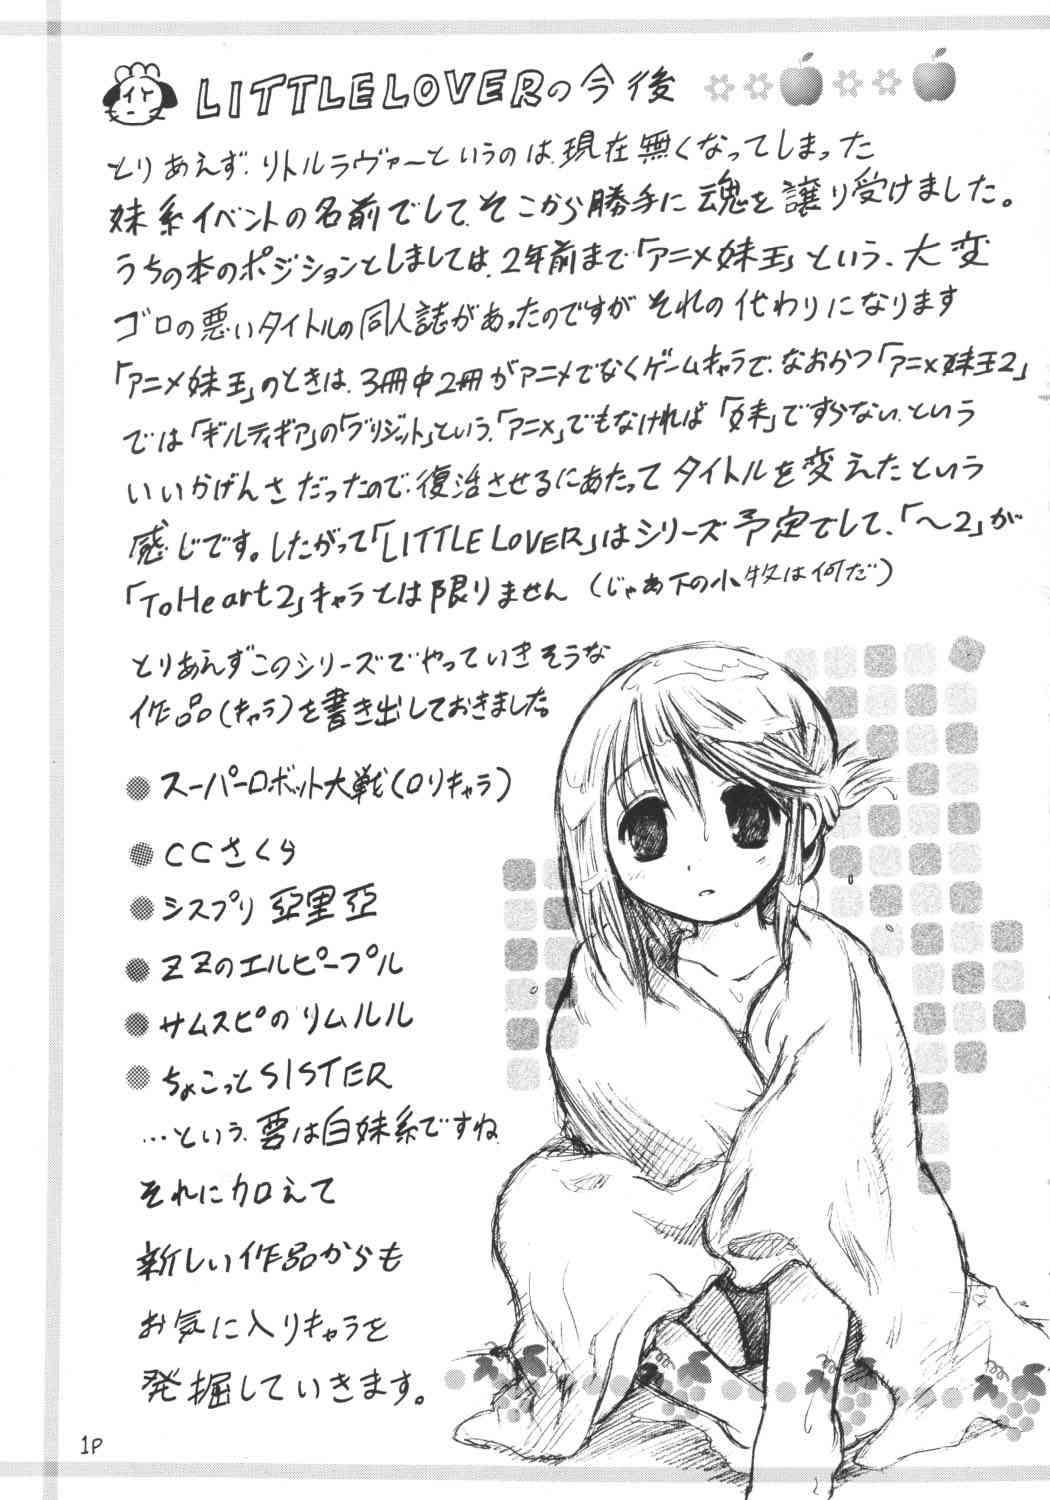 LITTLE LOVERの今後
とりあえず、リトルラヴァーというのは、現在無くなってしまった
妹系イベントの名前でして、そこから勝手に魂を譲り受けました。
うちの本のポジションとしましては、2年前まで「アニメ妹王」という、大変
ゴロの悪いタイトルの同人誌があったのですが それの代わりになります
「アニメ妹王」のときは、3冊中2冊がアニメでなくゲームキャラで、なおかつ「アニメ妹王2」
では「ギルティギア」の「ブリジット」という、「アニメ」でもなければ「妹」ですらない、という
いいかげんさだったので、復活させるにあたってタイトルを変えたという
感じです。したがって「LITTLE LOVER」はシリーズ予定でして、「〜2」が
「ToHeart2」キャラとは限りません (じゃあ下の小牧は何だ)
とりあえずこのシリーズでやっていきそうな
作品(キャラ)を書き出しておきました。
●スーパーロボット大戦(ロリキャラ)
●CCさくら
●シスプリ 亞里亞
●ZZのエルピープル
●サムスピのリムルル
●ちょこっとSISTER
...という、要は白妹系ですね
それに加えて
新しい作品からも
お気に入りキャラを
発掘していきます。
1P